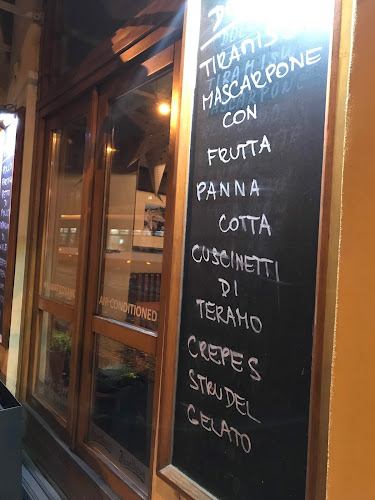 TIRAMISU
MASCARPONE
CON
FRUTTA
PANNA
COTTA
CUSCINETTI
DI
TERAMO
CREPES
STRUDEL
GELATO
AIR CONDITIONED